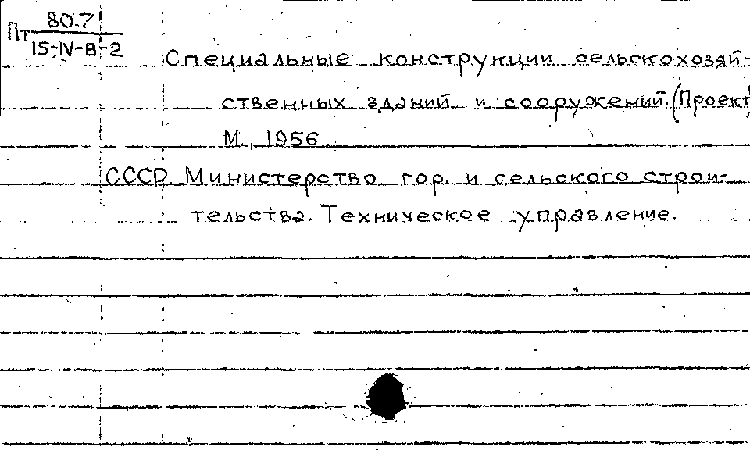 Пт 80.7
15-IV-В-2
Специальные конструкции сельскохозяй-
ственных зданий и сооружений. (Проект)
М. 1956
СССР. Министерство гор. и сельского строи-
тельства. Техническое управление.